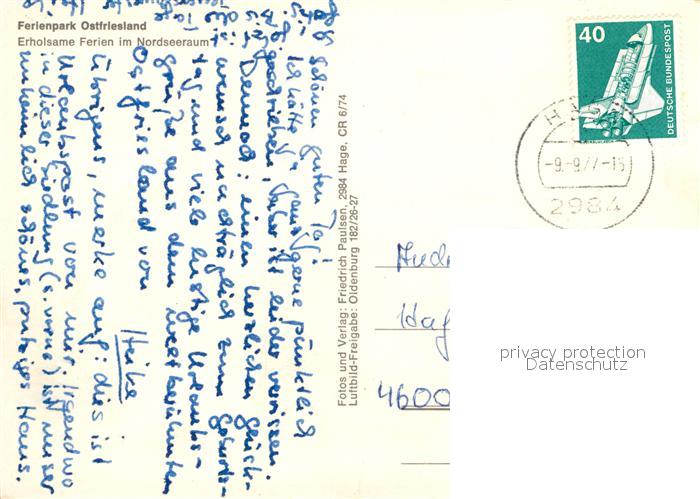 Ferienpark Ostfriesland
Erholsame Ferien im Nordseeraum
Schönen guten Tag!
Ich hätte ja ganz gerne pünktlich
geschrieben, aber ist leider verrissen.
Dennoch: einen herzlichen Glück-
wunsch nachträglich zum Geburts-
tag und viele lustige Urlaubs-
grüße aus dem weltberühmten
Ostfriesland von
Heike
Übrigens, merke auf: dies ist
Urlaubspost von mir. Irgendwo
in dieser Siedlung (s. vorne) ist unser
unheimlich schönes, putziges Haus.
Fotos und Verlag: Friedrich Paulsen, 2984 Hage, CR 6/74
Luftbild-Freigabe: Oldenburg 182/26-27
40
DEUTSCHE BUNDESPOST
-9.-9.77-15
2984
4600
privacy protection
Datenschutz